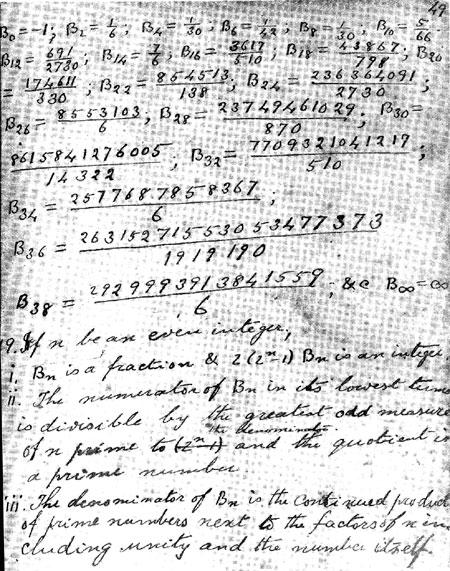 49
B₀ = -1; B₂ = 1/6; B₄ = 1/30; B₆ = 1/42; B₈ = 1/30; B₁₀ = 5/66
B₁₂ = 691/2730; B₁₄ = 7/6; B₁₆ = 3617/510; B₁₈ = 43867/798; B₂₀
= 174611/330; B₂₂ = 854513/138; B₂₄ = 236364091/2730;
B₂₆ = 8553103/6; B₂₈ = 23749461029/870; B₃₀ =
8615841276005/14322; B₃₂ = 7709321041217/510;
B₃₄ = 2577687858367/6;
B₃₆ = 26315271553053477373/1919190
B₃₈ = 2929993913841559/6; &c B∞ = ∞
19. If n be an even integer,
i. Bn is a fraction & 2(2ⁿ-1) Bn is an integer.
ii. The numerator of Bn in its lowest terms
is divisible by the greatest odd measure
the denominator
of n prime to (2ⁿ-1) and the quotient is
a prime number.
iii. The denominator of Bn is the continued product
of prime numbers next to the factors of n in-
cluding unity and the number itself.